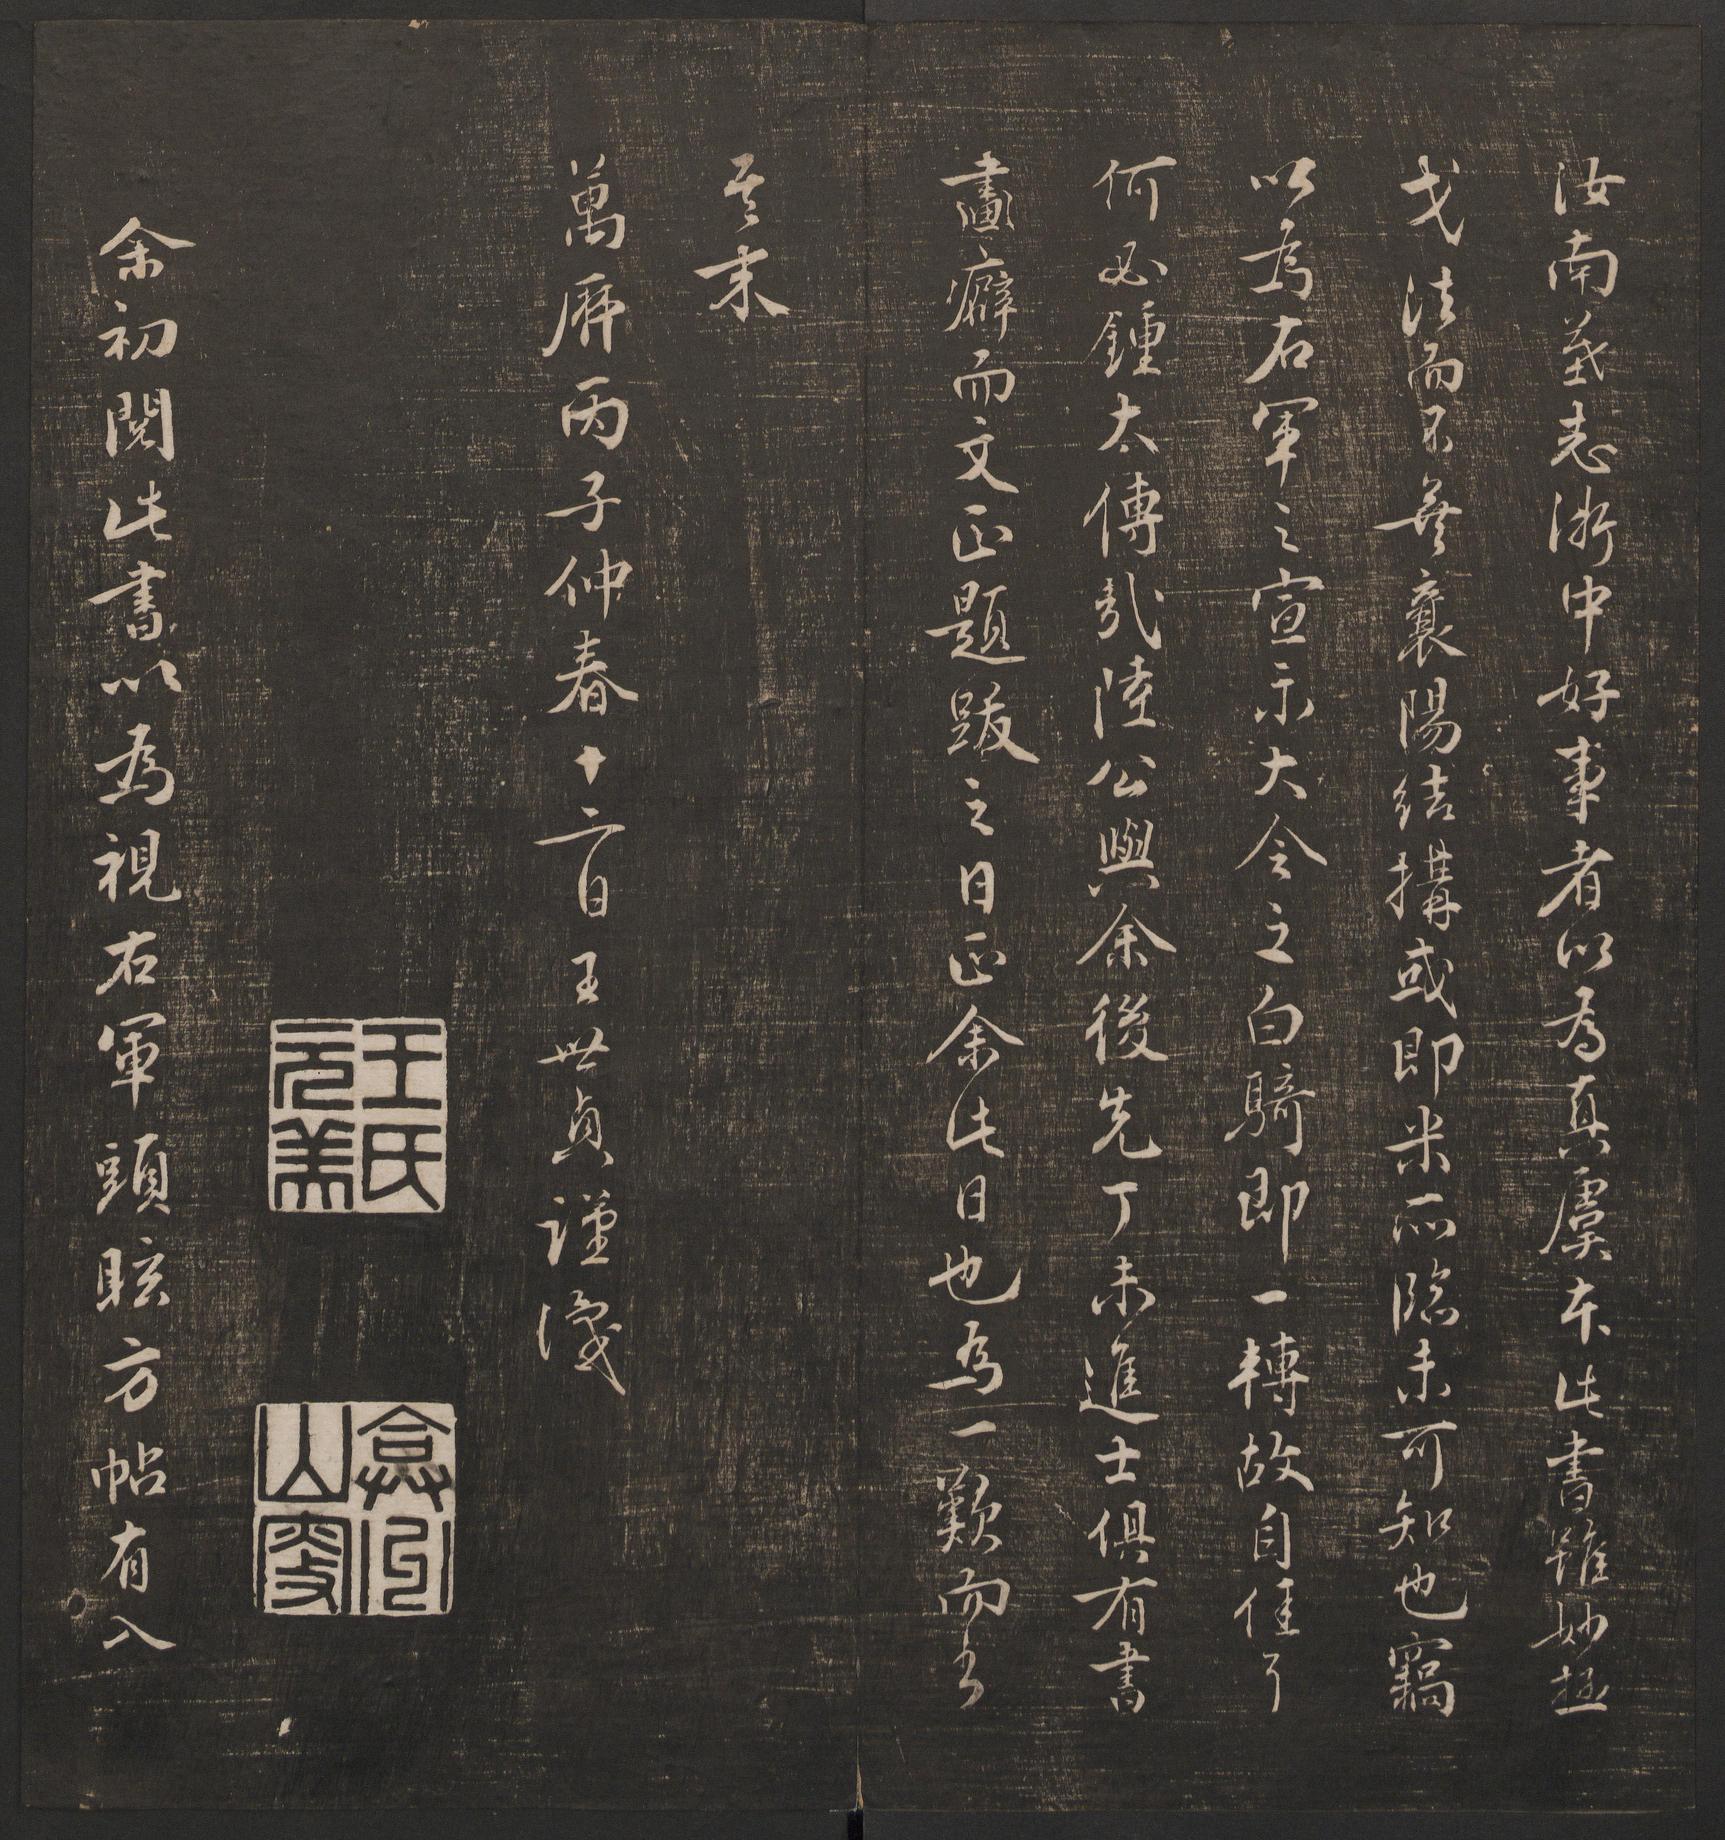 汝南茔志浙中好事者以為真虞本此書雖妙極
戈法而不無襄陽結搆或即米所臨未可知也竊
以為右軍之宣示大令之白騎即一轉故自佳了
何必鍾太傅哉陸公與余後先丁未進士俱有書
畫癖而文正題跋之日正余此日也為一歎而書
其末
萬曆丙子仲春十二日王世貞謹識
王氏元美
余初閱此書以為視右軍頭眩方帖有八